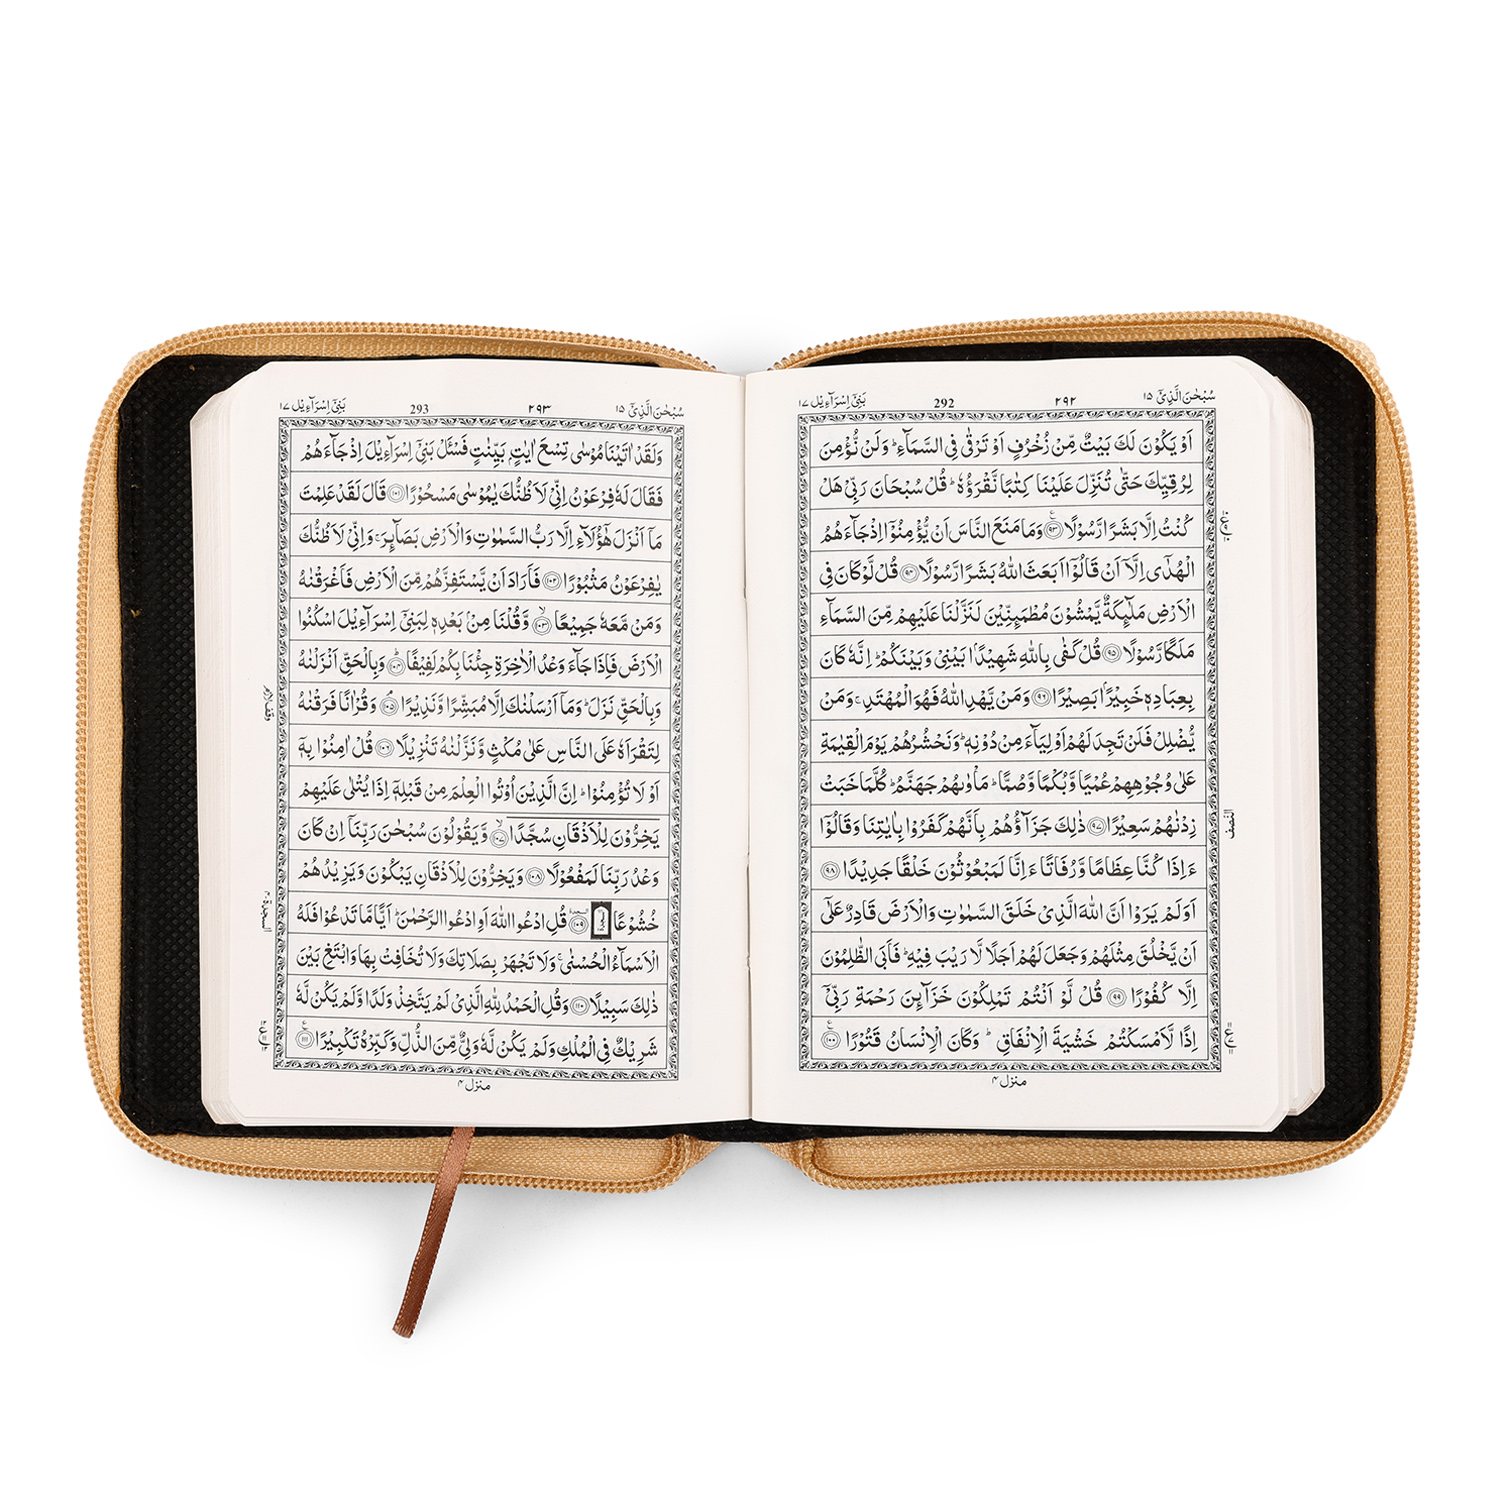 سُبْحٰنَ الَّذِیْۤ ۱۵
۲۹۲
292
بَنِیْۤ اِسْرَآءِیْل ۱۷
اَوْ یَكُوْنَ لَكَ بَیْتٌ مِّنْ زُخْرُفٍ اَوْ تَرْقٰی فِی السَّمَآءِ ؕ وَلَنْ نُّؤْمِنَ
لِرُقِیِّكَ حَتّٰی تُنَزِّلَ عَلَیْنَا كِتٰبًا نَّقْرَؤُهٗ ؕ قُلْ سُبْحَانَ رَبِّیْ هَلْ
كُنْتُ اِلَّا بَشَرًا رَّسُوْلًا ۹۳ وَمَا مَنَعَ النَّاسَ اَنْ یُّؤْمِنُوْۤا اِذْ جَآءَهُمُ
الْهُدٰۤی اِلَّاۤ اَنْ قَالُوْۤا اَبَعَثَ اللّٰهُ بَشَرًا رَّسُوْلًا ۹۴ قُلْ لَّوْ كَانَ فِی
الْاَرْضِ مَلٰٓىِٕكَةٌ یَّمْشُوْنَ مُطْمَىِٕنِّیْنَ لَنَزَّلْنَا عَلَیْهِمْ مِّنَ السَّمَآءِ
مَلَكًا رَّسُوْلًا ۹۵ قُلْ كَفٰی بِاللّٰهِ شَهِیْدًۢا بَیْنِیْ وَبَیْنَكُمْ ؕ اِنَّهٗ كَانَ
بِعِبَادِهٖ خَبِیْرًۢا بَصِیْرًا ۹۶ وَمَنْ یَّهْدِ اللّٰهُ فَهُوَ الْمُهْتَدِ ۚ وَمَنْ
یُّضْلِلْ فَلَنْ تَجِدَ لَهُمْ اَوْلِیَآءَ مِنْ دُوْنِهٖ ؕ وَنَحْشُرُهُمْ یَوْمَ الْقِیٰمَةِ
عَلٰی وُجُوْهِهِمْ عُمْیًا وَّبُكْمًا وَّصُمًّا ؕ مَاْوٰىهُمْ جَهَنَّمُ ؕ كُلَّمَا خَبَتْ
زِدْنٰهُمْ سَعِیْرًا ۹۷ ذٰلِكَ جَزَآؤُهُمْ بِاَنَّهُمْ كَفَرُوْا بِاٰیٰتِنَا وَقَالُوْۤا
ءَاِذَا كُنَّا عِظَامًا وَّرُفَاتًا ءَاِنَّا لَمَبْعُوْثُوْنَ خَلْقًا جَدِیْدًا ۹۸
اَوَلَمْ یَرَوْا اَنَّ اللّٰهَ الَّذِیْ خَلَقَ السَّمٰوٰتِ وَالْاَرْضَ قَادِرٌ عَلٰۤی
اَنْ یَّخْلُقَ مِثْلَهُمْ وَجَعَلَ لَهُمْ اَجَلًا لَّا رَیْبَ فِیْهِ ؕ فَاَبَی الظّٰلِمُوْنَ
اِلَّا كُفُوْرًا ۹۹ قُلْ لَّوْ اَنْتُمْ تَمْلِكُوْنَ خَزَآىِٕنَ رَحْمَةِ رَبِّیْۤ
اِذًا لَّاَمْسَكْتُمْ خَشْیَةَ الْاِنْفَاقِ ؕ وَكَانَ الْاِنْسَانُ قَتُوْرًا ۱۰۰
النصف
منزل ۴
سُبْحٰنَ الَّذِیْۤ ۱۵
۲۹۳
293
بَنِیْۤ اِسْرَآءِیْل ۱۷
وَلَقَدْ اٰتَیْنَا مُوْسٰی تِسْعَ اٰیٰتٍۭ بَیِّنٰتٍ فَسْـَٔلْ بَنِیْۤ اِسْرَآءِیْلَ اِذْ جَآءَهُمْ
فَقَالَ لَهٗ فِرْعَوْنُ اِنِّیْ لَاَظُنُّكَ یٰمُوْسٰی مَسْحُوْرًا ۱۰۱ قَالَ لَقَدْ عَلِمْتَ
مَاۤ اَنْزَلَ هٰۤؤُلَآءِ اِلَّا رَبُّ السَّمٰوٰتِ وَالْاَرْضِ بَصَآىِٕرَ ۚ وَاِنِّیْ لَاَظُنُّكَ
یٰفِرْعَوْنُ مَثْبُوْرًا ۱۰۲ فَاَرَادَ اَنْ یَّسْتَفِزَّهُمْ مِّنَ الْاَرْضِ فَاَغْرَقْنٰهُ
وَمَنْ مَّعَهٗ جَمِیْعًا ۱۰۳ وَّقُلْنَا مِنْۢ بَعْدِهٖ لِبَنِیْۤ اِسْرَآءِیْلَ اسْكُنُوا
الْاَرْضَ فَاِذَا جَآءَ وَعْدُ الْاٰخِرَةِ جِئْنَا بِكُمْ لَفِیْفًا ۱۰۴ وَبِالْحَقِّ اَنْزَلْنٰهُ
وَبِالْحَقِّ نَزَلَ ؕ وَمَاۤ اَرْسَلْنٰكَ اِلَّا مُبَشِّرًا وَّنَذِیْرًا ۱۰۵ وَقُرْاٰنًا فَرَقْنٰهُ
لِتَقْرَاَهٗ عَلَی النَّاسِ عَلٰی مُكْثٍ وَّنَزَّلْنٰهُ تَنْزِیْلًا ۱۰۶ قُلْ اٰمِنُوْا بِهٖۤ
اَوْ لَا تُؤْمِنُوْا ؕ اِنَّ الَّذِیْنَ اُوْتُوا الْعِلْمَ مِنْ قَبْلِهٖۤ اِذَا یُتْلٰی عَلَیْهِمْ
یَخِرُّوْنَ لِلْاَذْقَانِ سُجَّدًا ۱۰۷ وَّیَقُوْلُوْنَ سُبْحٰنَ رَبِّنَاۤ اِنْ كَانَ
وَعْدُ رَبِّنَا لَمَفْعُوْلًا ۱۰۸ وَیَخِرُّوْنَ لِلْاَذْقَانِ یَبْكُوْنَ وَیَزِیْدُهُمْ
خُشُوْعًا ۱۰۹ قُلِ ادْعُوا اللّٰهَ اَوِ ادْعُوا الرَّحْمٰنَ ؕ اَیًّا مَّا تَدْعُوْا فَلَهُ
الْاَسْمَآءُ الْحُسْنٰی ۚ وَلَا تَجْهَرْ بِصَلَاتِكَ وَلَا تُخَافِتْ بِهَا وَابْتَغِ بَیْنَ
ذٰلِكَ سَبِیْلًا ۱۱۰ وَقُلِ الْحَمْدُ لِلّٰهِ الَّذِیْ لَمْ یَتَّخِذْ وَلَدًا وَّلَمْ یَكُنْ لَّهٗ
شَرِیْكٌ فِی الْمُلْكِ وَلَمْ یَكُنْ لَّهٗ وَلِیٌّ مِّنَ الذُّلِّ وَكَبِّرْهُ تَكْبِیْرًا ۱۱۱
السجدة ۴
منزل ۴